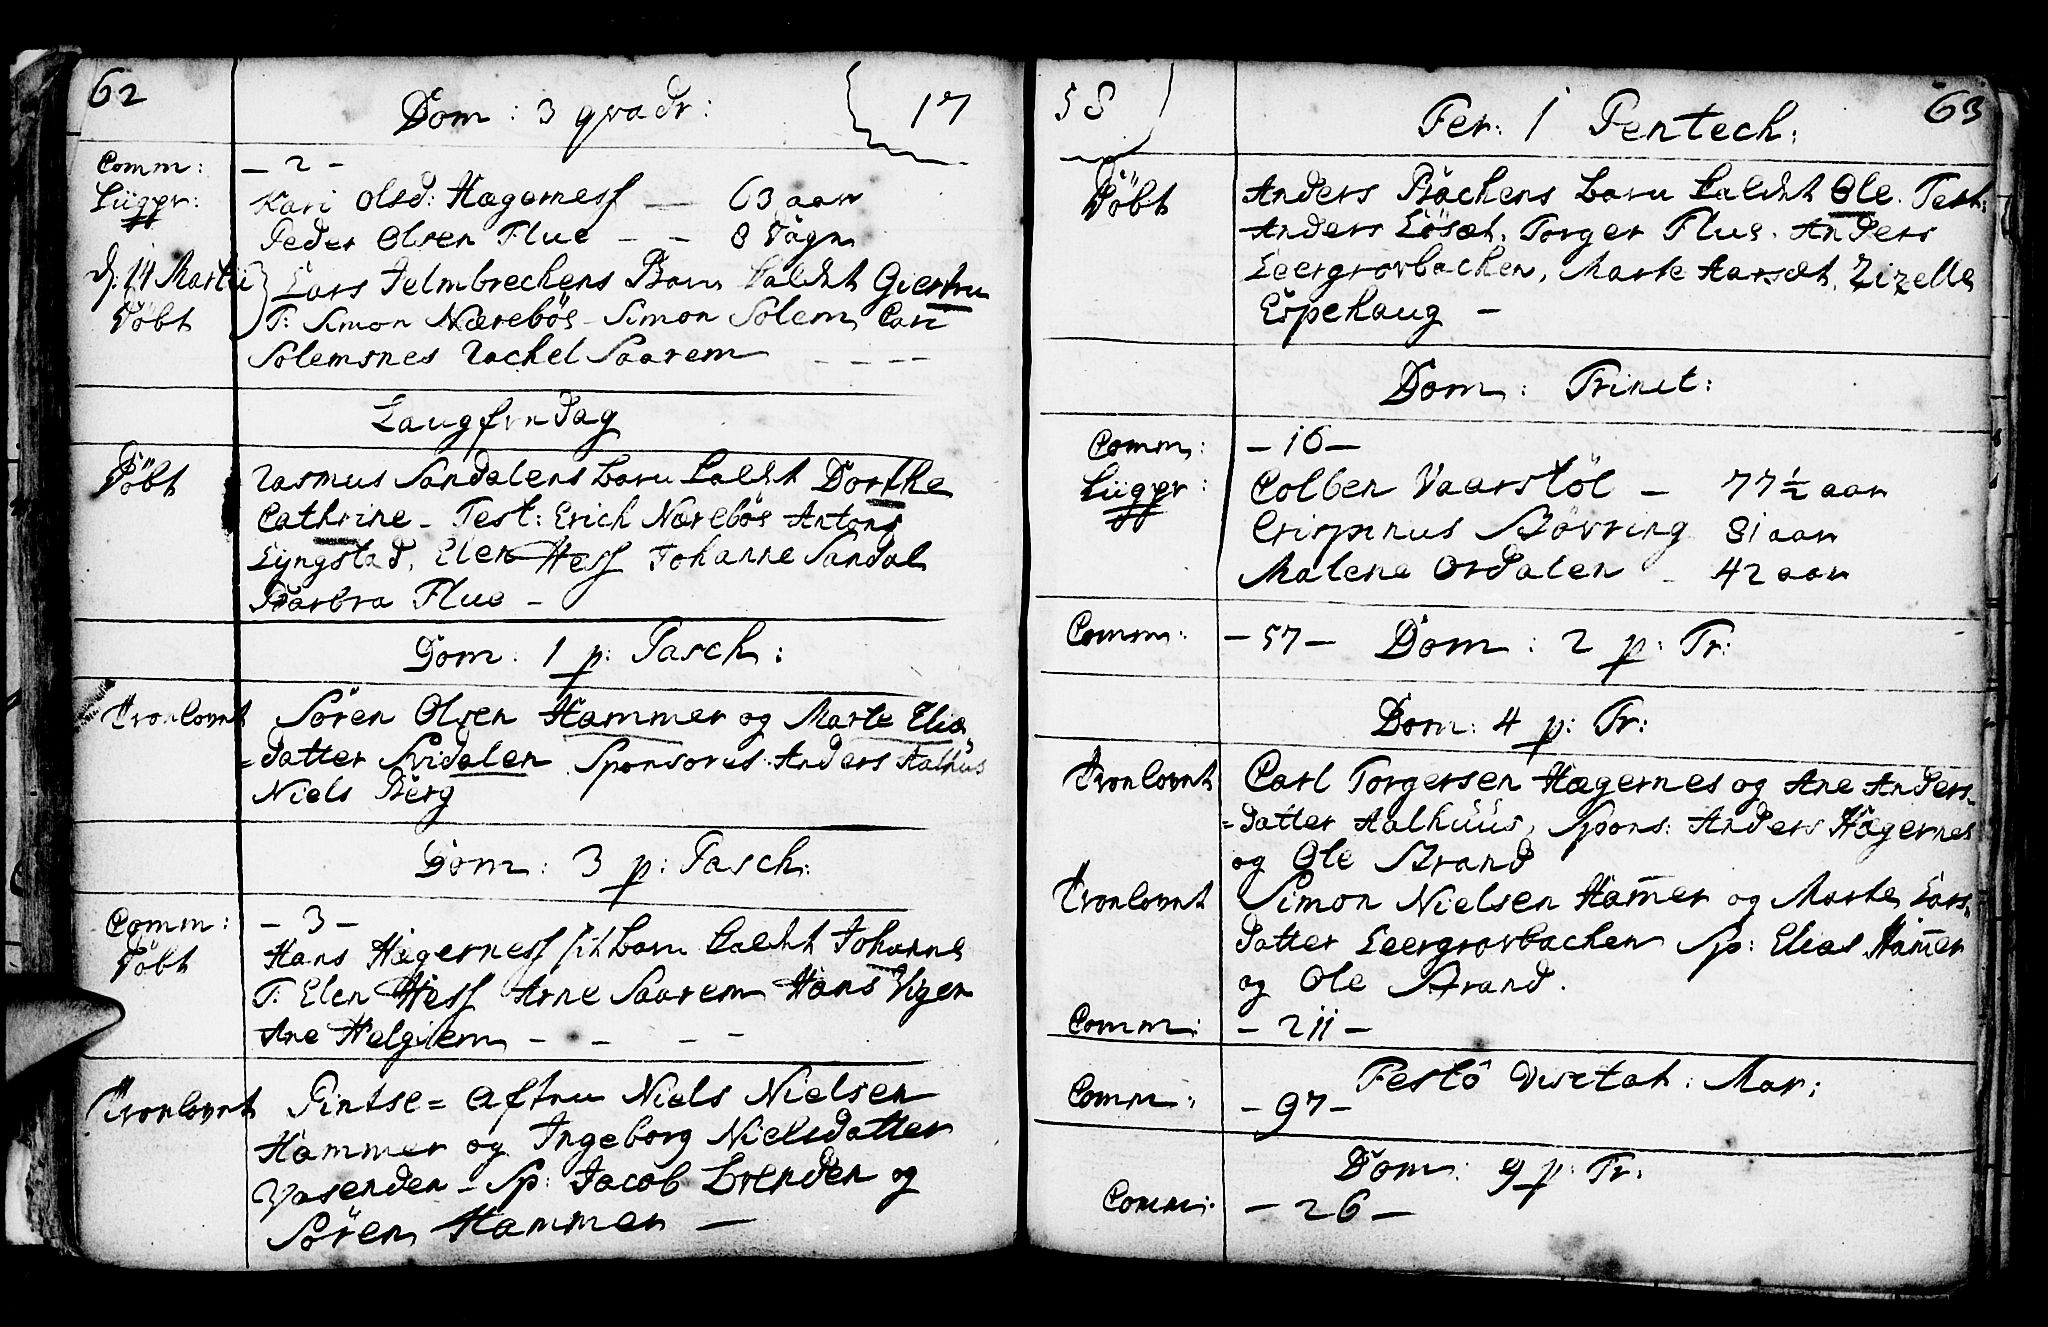 62
Dom: 3 qvadr: 17
Comm: - 2 -
Liigpr: Kari Olsd: Hægerness — 63 aar
Peder Olsen Flue - - 8 Dagr
d. 14 Martii Lars Jelmbrechens Barn kaldet Giertru
Döbt T: Simon Nærebös - Simon Solem, Cari
Solemsnes Rachel Saarem - - - -
Laugfrudag
Döbt Rasmus Sandalens barn kaldet Dorthe
Cathrine - Test: Erich Nærebös Antons
Lyngstad, Elen Hess Johanne Sandal
Barbra Flue -
Dom: 1 p: Pasch:
Trorlovet Sören Olsen Hammer og Marte Elia
=datter Svidalen Sponsores Anders Aalhus
Niels Berg
Dom: 3 p: Pasch:
Comm: - 3 -
Döbt Hans Hægerness sit barn kaldet Johanne
T: Elen Hess Arne Saarem Hans Viger
Ane Helgiem - - - -
Trorlovet Pintse= Aften Niels Nielsen
Hammer og Ingeborg Nielsdatter
Vasenden - Sp: Jacob Brenden og
Sören Hammer —
58 63
Fer: 1 Pentech:
Döbt Anders Bachens barn kaldet Ole. Test:
Anders Lösæt, Torger Flue. Anders
Leergrovbachen, Marte Aarsæt, Zizelle
Espehaug -
Dom: Trinit:
Comm: - 16 -
Liigpr: Colben Vaarstöl - 77 ½ aar
Crispinus Stövring 81 aar
Malene Ordalen - 42 aar
Comm: - 57 - Dom: 2 p: Tr:
Dom: 4 p: Tr:
Trorlovet Carl Torgersen Hægernes og Ane Anders-
=datter Aalhuus, Spons: Anders Hægernes
og Ole Strand
Trorlovet Simon Nielsen Ham̅er og Marte Lars-
datter Leergrovbachen Sp: Elias Ham̅er
og Ole Strand.
Comm: - 211 -
Festo Visitat: Mar:
Comm: - 97 -
Dom: 9 p: Tr:
Comm: - 26 -